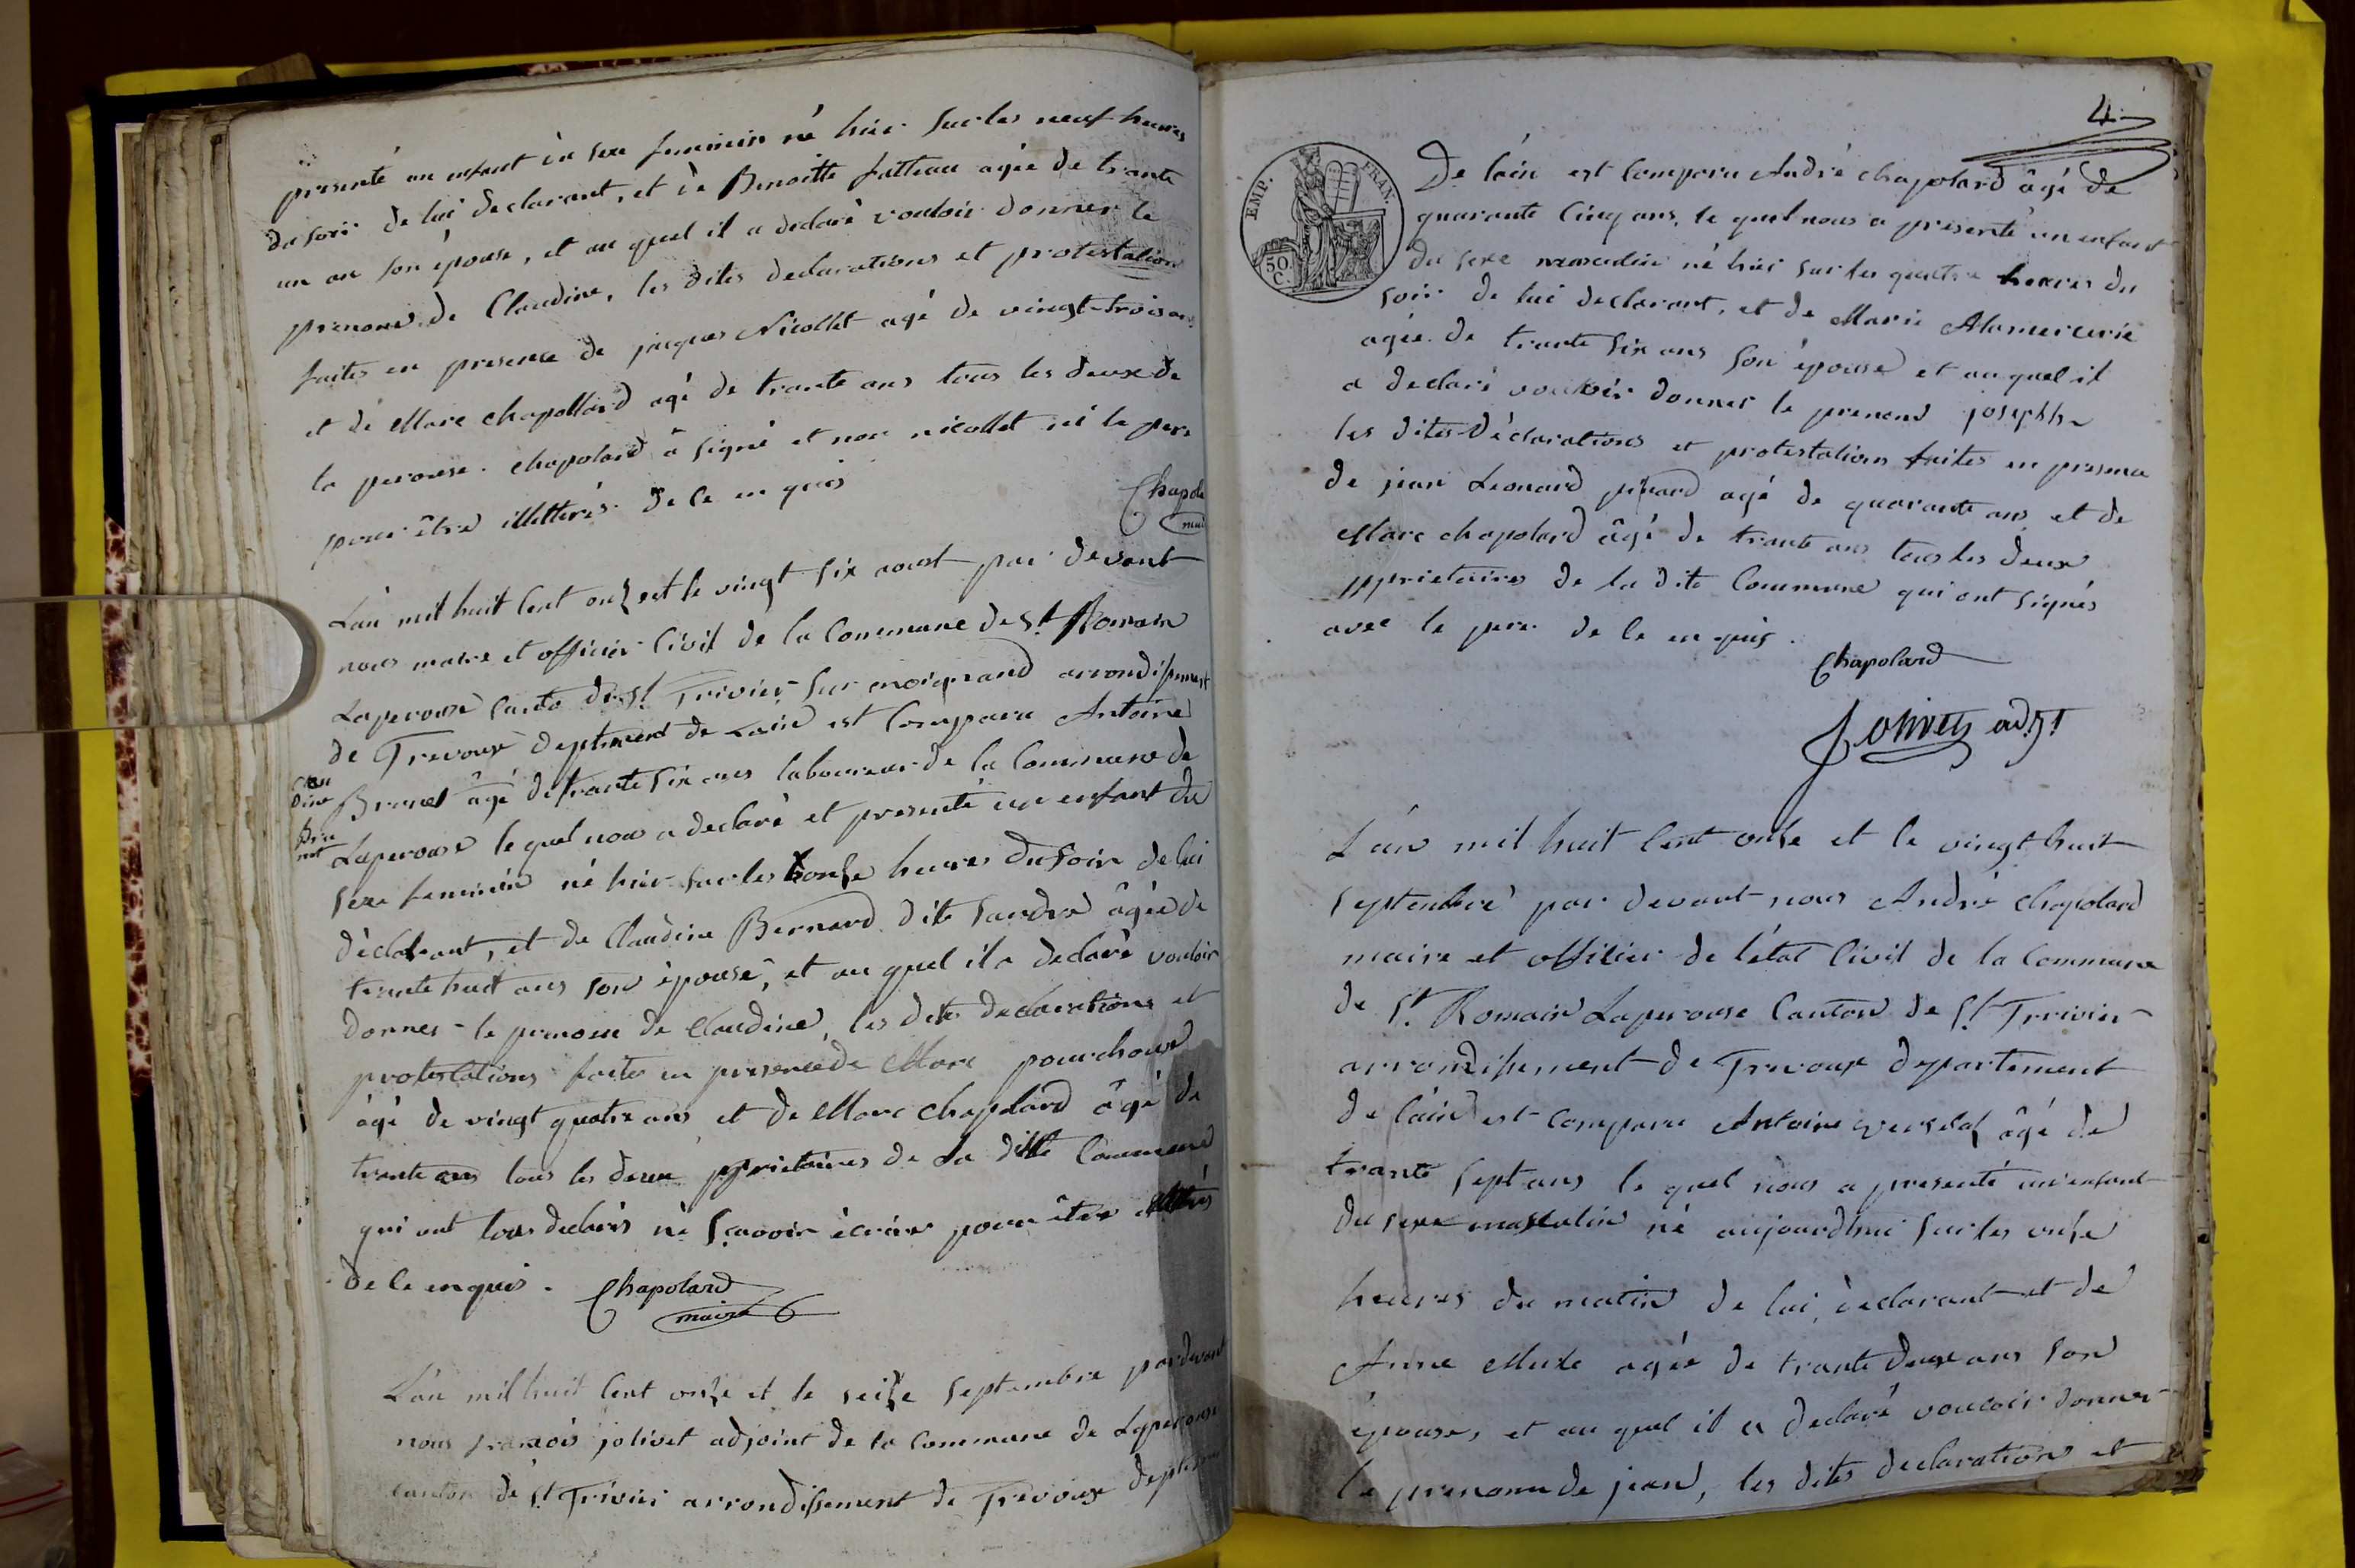 presenté un enfant du sexe feminin né hier sur les neuf heures
du soir de lui declarant, et de Benoitte agée de trante
un an son épouse, et au quel il a declaré vouloir donner le
prenome de Claudine, les dites declarations et protestations
faites en presence de jacques Nicollet agé de vingt-trois ans
et de Marc chapollard agé de trante ans tous les deux de
la perouse. chapolard a signé et non nicollet ni le pere
pour être illettérés de ce en quis
Chapola
mai
L'an mil huit Cent onze et le vingt six aoust par devant
nous maire et officier Civil de la Commune de St Romain
Laperouse Canto de St Trivier sur moignand arrondissement
de Trevoux deptement de Lain est Comparu Antoine
âgé de trante six ans laboureur de la Commune de
Laperouse le quel nous a declaré et presenté un enfant du
sexe feminin né hier sur les honse heures du soir de lui
déclarant, et de Claudine Bernard dite Sandre âgée de
trante huit ans son épouse, et au quel il a declaré vouloir
donner le prenom de Claudine, les dites declarations et
protestations faites en presence de Marc
âgé de vingt quatre ans et de Marc chapolard âgé de
trante ans tous les deux pprietaires de La ditte Commune
qui ont tous declarés ne sçavoir écrire pour être illétrés
de ce enquis. Chapolard
maire
L'an mil huit Cent onze et le seize septembre par devant
nous françois jolivet adjoint de la commune de Laperouse
canton de St Trivier arrondissement de Trévoux deptement
4
EMP. FRAN.
50.
C.
De l'ain est Comparu André chapolard âgé de
quarante Cinq ans, le quel nous a presenté un enfant
du sexe masculin né hier sur les quatre heures du
soir de lui declarant, et de Marie Alamercerie
agée de trante six ans son épouse et au quel il
a declaré vouloir donner le prenome joseph
les dites déclarations et protestations faites en presence
de jean Leonard agé de quarante ans et de
Marc chapolard âgé de trante ans tous les deux
pprietaires de la dite Commune qui ont signés
avec le pere de ce en quis.
Chapolard
Jolivet adjt
L'an mil huit Cent onse et le vingt huit
septembre par devant nous André chapolard
maire et officier de l'état Civil de la Commune
de St Romain Laperouse Canton de St Trivier
arrondissement de Trevoux departement
de l'ain est comparu Antoine âgé de
trante sept ans le quel nous a presenté un enfant
du sexe masculin né aujourdhui sur les onse
heures du matin de lui déclarant et de
Anne agée de trante deux ans son
épouse, et au quel il a declaré vouloir donner
le prenome de jean, les dites declaration et